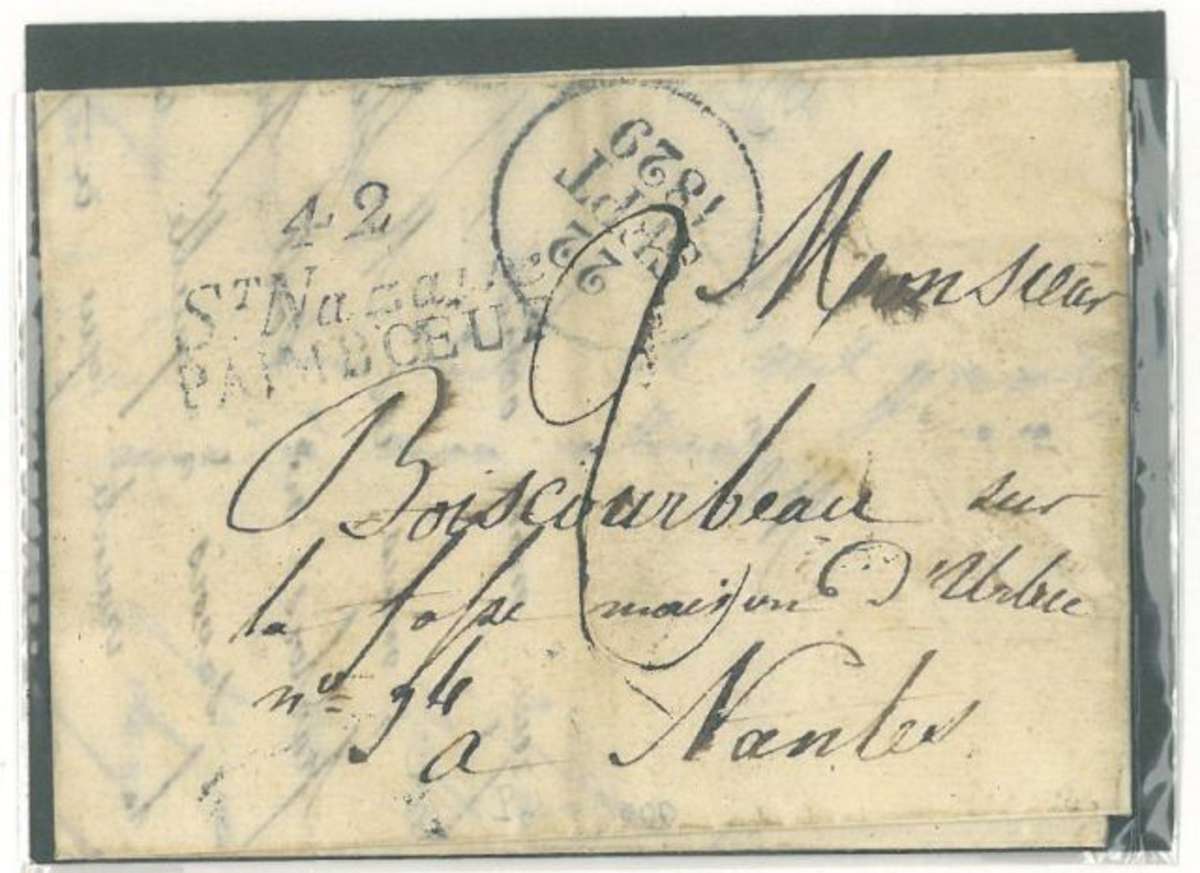 42
ST Nazaire
PAIMBOEUF
22
SEPT
1829
Monsieur
Boiscourbeau sur
la fosse maison D'Urbée
no
a Nantes